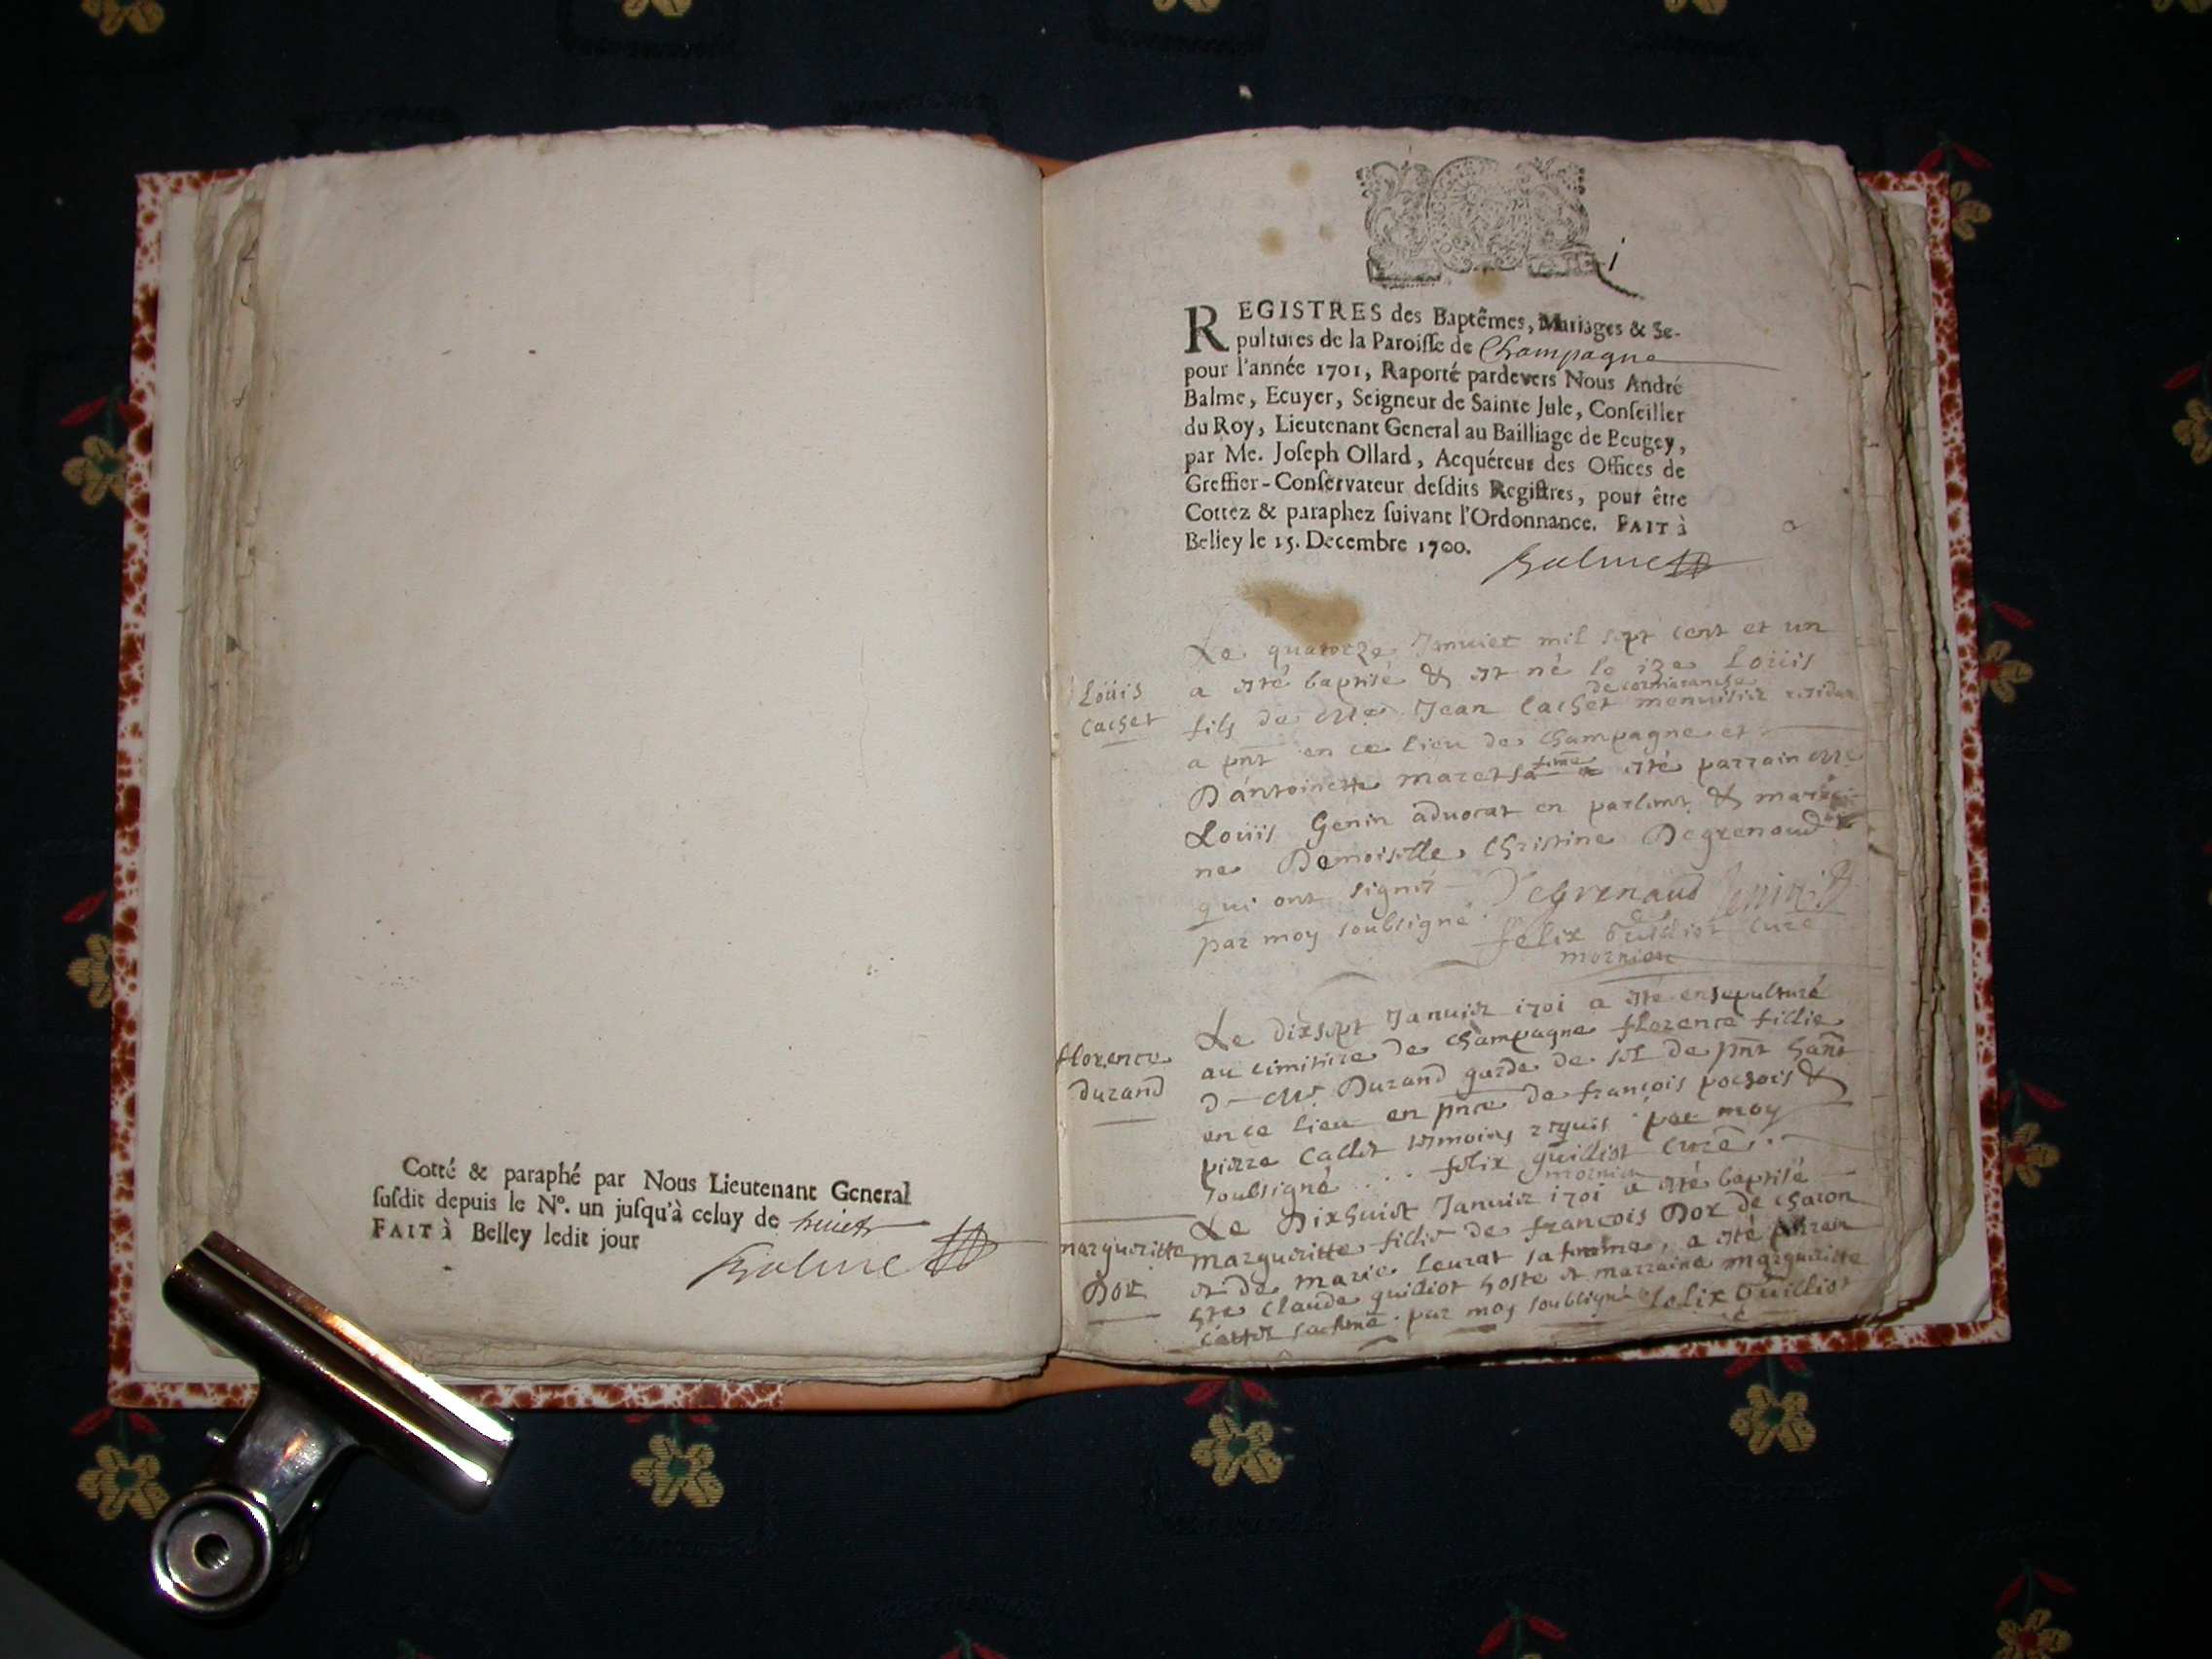 Cotté & paraphé par Nous Lieutenant General
ſuſdit depuis le Nº. un juſqu'à celuy de huict
FAIT à Belley ledit jour
Balme
i
REGISTRES des Baptêmes, Mariages & Se-
pultures de la Paroiſſe de Champagne
pour l'année 1701, Raporté pardevers Nous André
Balme, Ecuyer, Seigneur de Sainte Jule, Conſeiller
du Roy, Lieutenant General au Bailliage de Beugey,
par Me. Joſeph Ollard, Acquéreur des Offices de
Greffier-Conſervateur deſdits Regiſtres, pour être
Cottez & paraphez ſuivant l'Ordonnance. FAIT à
Belley le 15. Decembre 1700.
Balme
Loüis
Cachet
Le quatorze Januier mil sept cent et un
a esté baptisé & est né le 13e Loüis
de cormaranche
fils de Me Jean Cachet menuisier residan
a pnt en ce lieu de Champagne et
D'antoinette maret sa fme a esté parrain Me
Loüis Genin aduocat en parlemt & marrai
ne Demoiselle Christine Degrenaud
qui ont signés Degrenaud Genin
par moy soubsigné felix Guilliot Curé
mornieu
florence
Durand
Le dixsept Januier 1701 a esté ensepulturé
au cimitiere de Champagne florence fillie
d Mr Durand garde de sel de pnt hant
en ce lieu en pnce de françois pochois &
pierre Callet temoins requis par moy
soubsigné felix guilliot Curé
mornieu
margueritte
Dor
Le Dixhuict Januier 1701 a esté baptisé
margueritte fillie de françois Dor de Charon
et de marie leurat sa femme, a esté parrain
hre Claude guilliot hoste et marraine margueritte
sa fme par moy soubsigné felix Guilliot